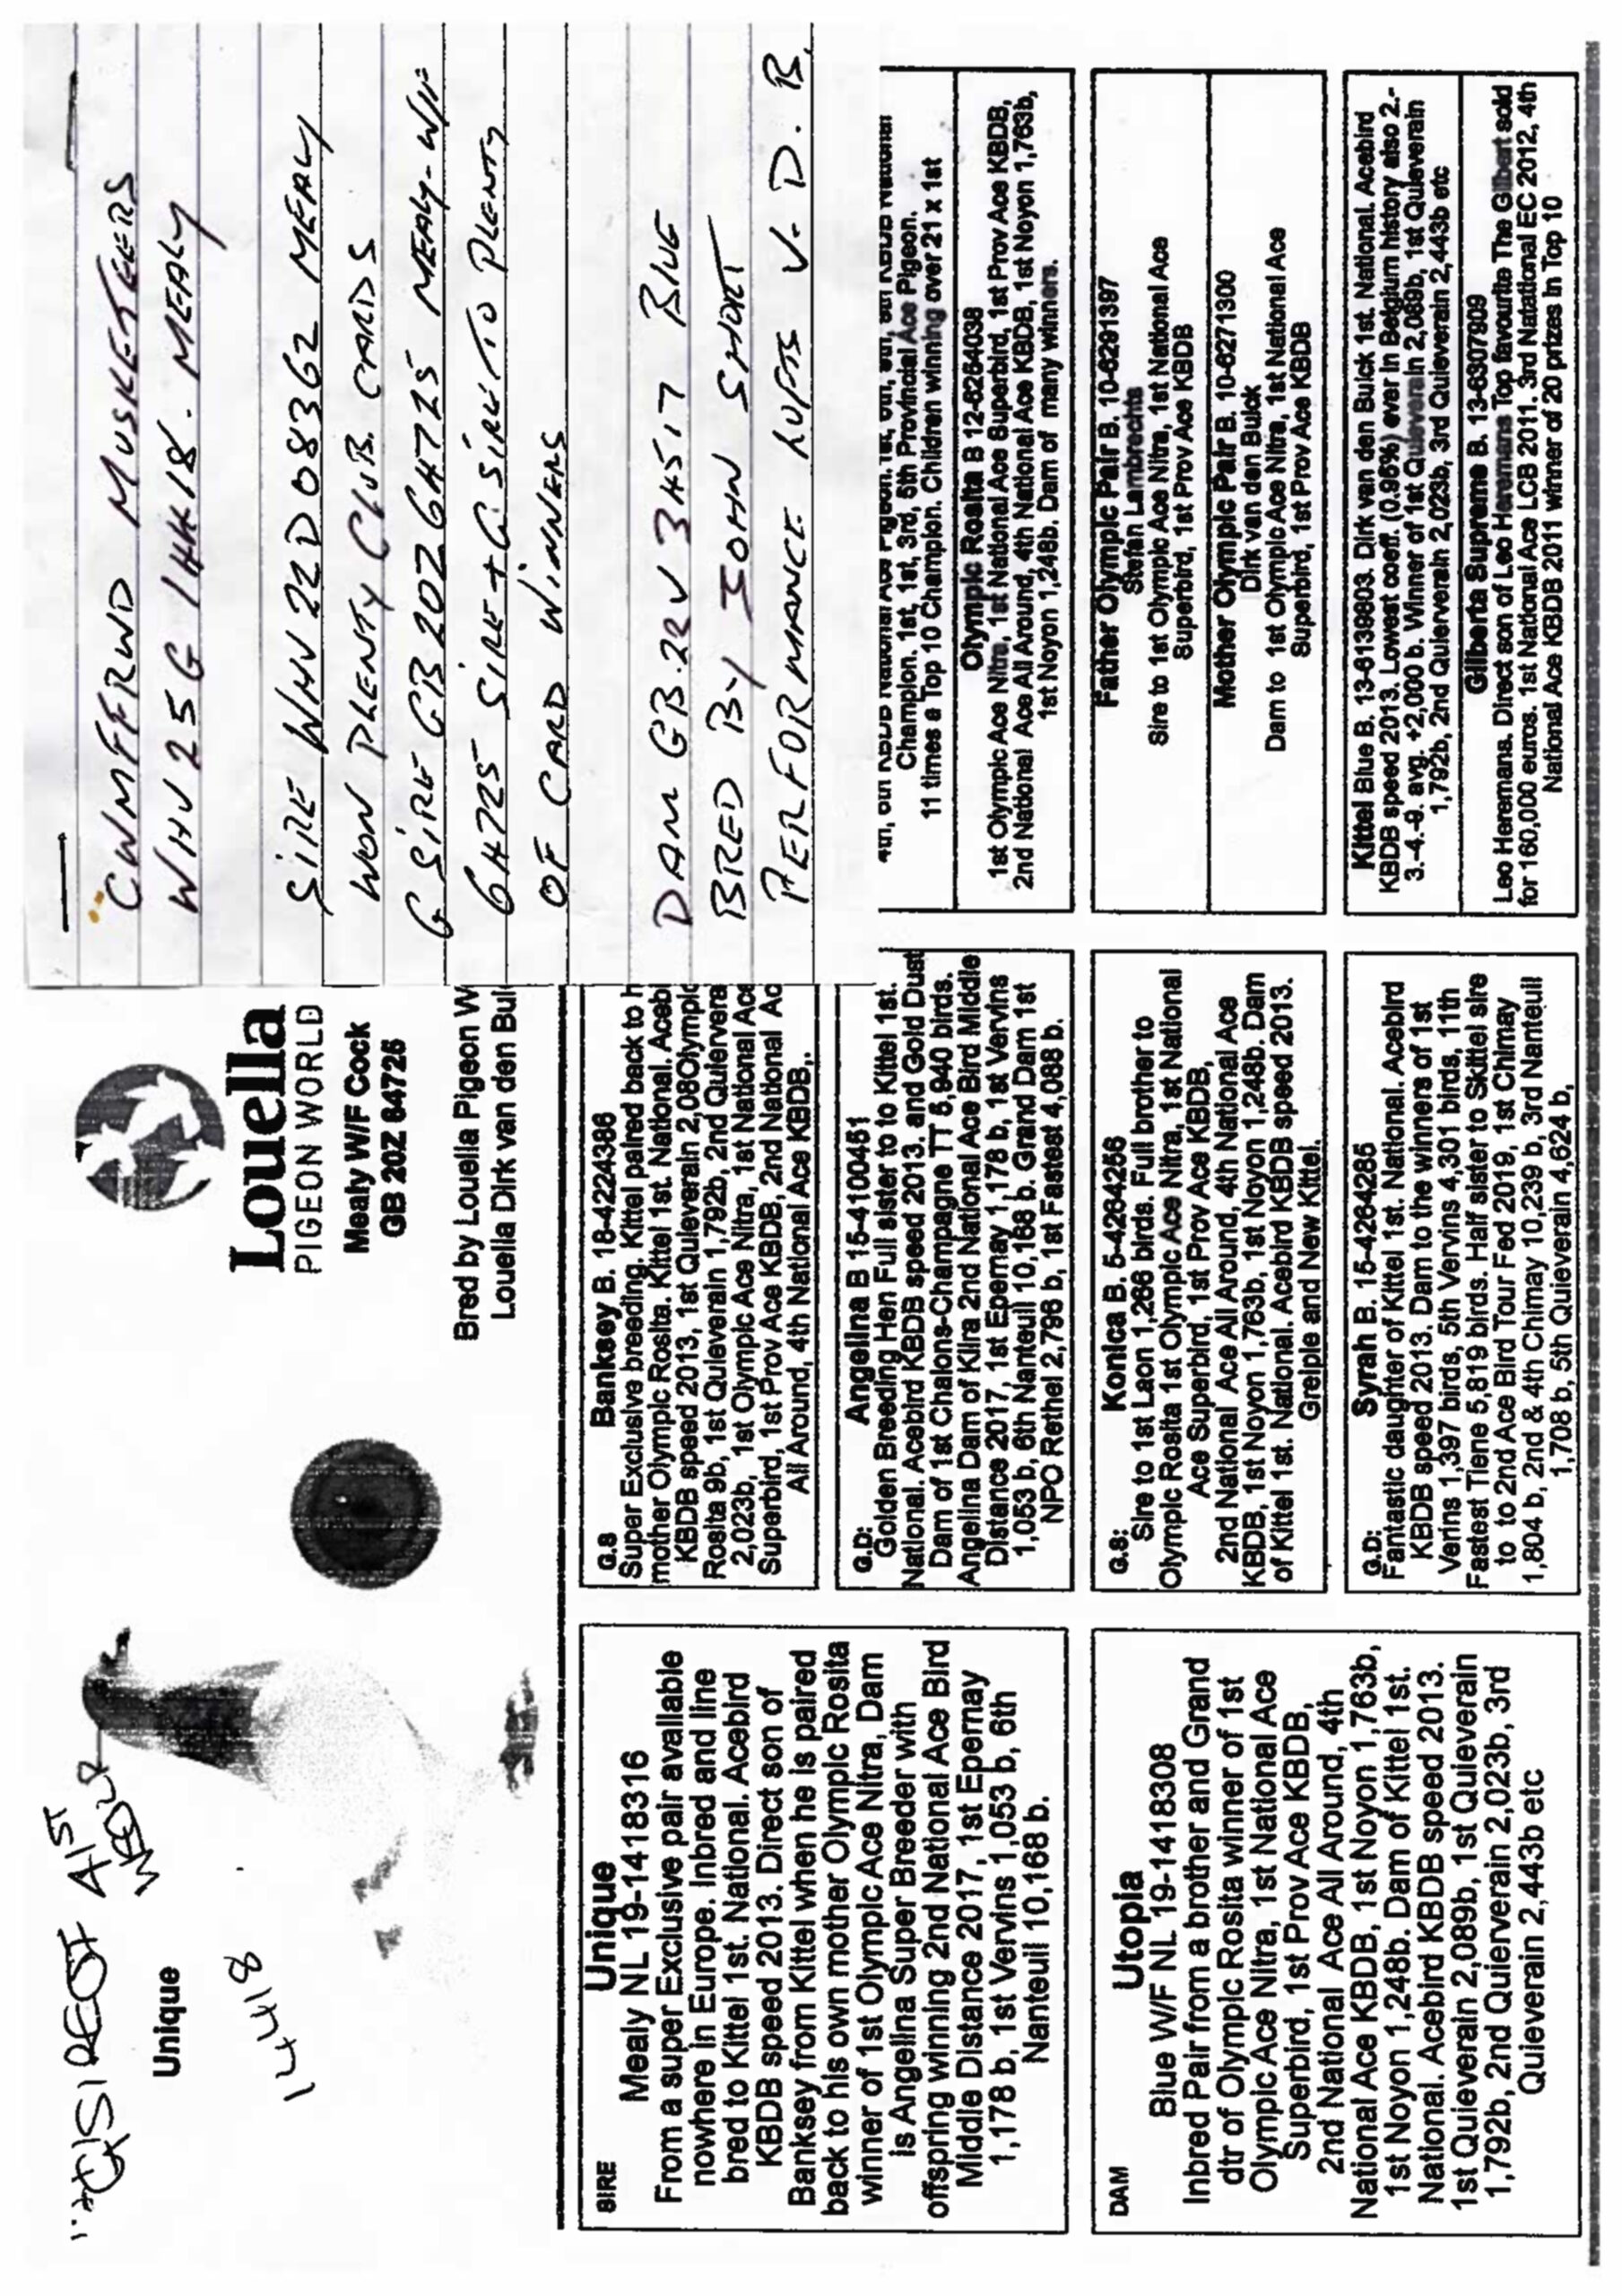 G SIRE OF
A1ST
Unique
14418
Louella
PIGEON WORLD
Mealy W/F Cock
GB 20Z 64725
Bred by Louella Pigeon W
Louella Dirk van den Bui
CWMFFRWD MUSKETEERS
WHV 25 G 1HK18. MEALY
SIRE WHV 22 D 08362 MEALY
WON PLENTY CLUB. CARDS
G SIRE GB 20Z 64725 MEALY-W/F
64725 SIRE + G SIRE TO PLENTY
OF CARD WINNERS
DAM GB.22 V 34517 BLUE
BRED BY JOHN SHORT
PERFORMANCE LOFTS V. D. B.
SIRE
Unique
Mealy NL 19-1418316
From a super Exclusive pair available
nowhere in Europe. Inbred and line
bred to Kittel 1st. National. Acebird
KBDB speed 2013. Direct son of
Banksey from Kittel when he is paired
back to his own mother Olympic Rosita
winner of 1st Olympic Ace Nitra, Dam
is Angelina Super Breeder with
offspring winning 2nd National Ace Bird
Middle Distance 2017, 1st Epernay
1,178 b, 1st Vervins 1,053 b, 6th
Nanteuil 10,168 b.
DAM
Utopia
Blue W/F NL 19-1418308
Inbred Pair from a brother and Grand
dtr of Olympic Rosita winner of 1st
Olympic Ace Nitra, 1st National Ace
Superbird, 1st Prov Ace KBDB,
2nd National Ace All Around, 4th
National Ace KBDB, 1st Noyon 1,763b,
1st Noyon 1,248b. Dam of Kittel 1st.
National. Acebird KBDB speed 2013.
1st Quieverain 2,089b, 1st Quieverain
1,792b, 2nd Quierverain 2,023b, 3rd
Quieverain 2,443b etc
G.S
Banksey B. 18-4224386
Super Exclusive breeding. Kittel paired back to h
mother Olympic Rosita. Kittel 1st. National. Acebi
KBDB speed 2013, 1st Quieverain 2,08Olympic
Rosita 9b, 1st Quieverain 1,792b, 2nd Quiervera
2,023b, 1st Olympic Ace Nitra, 1st National Ace
Superbird, 1st Prov Ace KBDB, 2nd National Ac
All Around, 4th National Ace KBDB,.
G.D:
Angelina B 15-4100451
Golden Breeding Hen Full sister to to Kittel 1st.
National. Acebird KBDB speed 2013. and Gold Dust
Dam of 1st Chalons-Champagne TT 5,940 birds.
Angelina Dam of Klira 2nd National Ace Bird Middle
Distance 2017, 1st Epernay 1,178 b, 1st Vervins
1,053 b, 6th Nanteuil 10,168 b. Grand Dam 1st
NPO Rethel 2,796 b, 1st Fastest 4,088 b.
G.S:
Konica B. 5-4264256
Sire to 1st Laon 1,266 birds. Full brother to
Olympic Rosita 1st Olympic Ace Nitra, 1st National
Ace Superbird, 1st Prov Ace KBDB,
2nd National Ace All Around, 4th National Ace
KBDB, 1st Noyon 1,763b, 1st Noyon 1,248b. Dam
of Kittel 1st. National. Acebird KBDB speed 2013.
Greipie and New Kittel.
G.D:
Syrah B. 15-4264285
Fantastic daughter of Kittel 1st. National. Acebird
KBDB speed 2013. Dam to the winners of 1st
Verins 1,397 birds, 5th Vervins 4,301 birds, 11th
Fastest Tiene 5,819 birds. Half sister to Skittel sire
to to 2nd Ace Bird Tour Fed 2019, 1st Chimay
1,804 b, 2nd & 4th Chimay 10,239 b, 3rd Nanteuil
1,708 b, 5th Quieverain 4,624 b,
Champion. 1st, 1st, 3rd, 5th Provincial Ace Pigeon.
11 times a Top 10 Champion. Children winning over 21 x 1st
Olympic Rosita B 12-6264038
1st Olympic Ace Nitra, 1st National Ace Superbird, 1st Prov Ace KBDB,
2nd National Ace All Around, 4th National Ace KBDB, 1st Noyon 1,763b,
1st Noyon 1,248b. Dam of many winners.
Father Olympic Pair B. 10-6291397
Stefan Lambrechts
Sire to 1st Olympic Ace Nitra, 1st National Ace
Superbird, 1st Prov Ace KBDB
Mother Olympic Pair B. 10-6271300
Dirk van den Bulck
Dam to 1st Olympic Ace Nitra, 1st National Ace
Superbird, 1st Prov Ace KBDB
Kittel Blue B. 13-6139803. Dirk van den Buick 1st. National. Acebird
KBDB speed 2013. Lowest coeff. (0.96%) ever in Belgium history also 2.-
3.-4.-9. avg. +2,000 b. Winner of 1st Quieverain 2,089b, 1st Quieverain
1,792b, 2nd Quierverain 2,023b, 3rd Quieverain 2,443b etc
Gilberta Supreme B. 13-6307909
Leo Heremans. Direct son of Leo Heremans Top favourite The Gilbert sold
for 160,000 euros. 1st National Ace LCB 2011. 3rd Natational EC 2012, 4th
National Ace KBDB 2011 winner of 20 prizes in Top 10